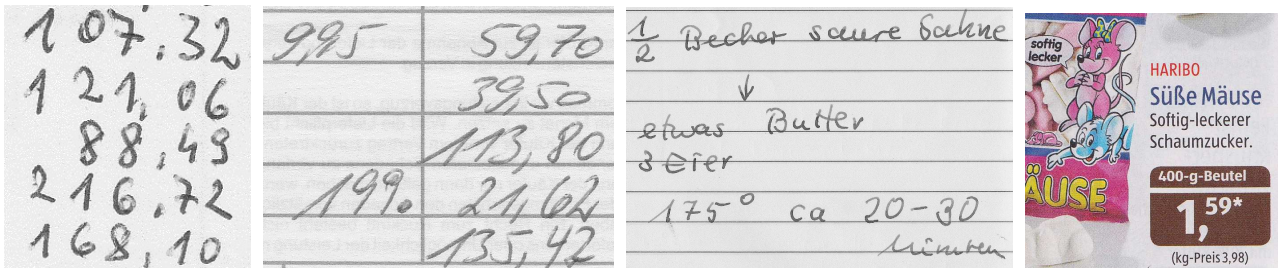 107.32
121,06
88,49
216.72
168,10
9,95 59,70
39,50
113,80
19%. 21,62
135,42
1/2 Becher saure Sahne
↓
etwas Butter
3 Eier
175° ca 20-30
Minuten
softig
lecker
HARIBO
Süße Mäuse
Softig-leckerer
Schaumzucker.
ÄUSE
400-g-Beutel
1,59*
(kg-Preis 3,98)